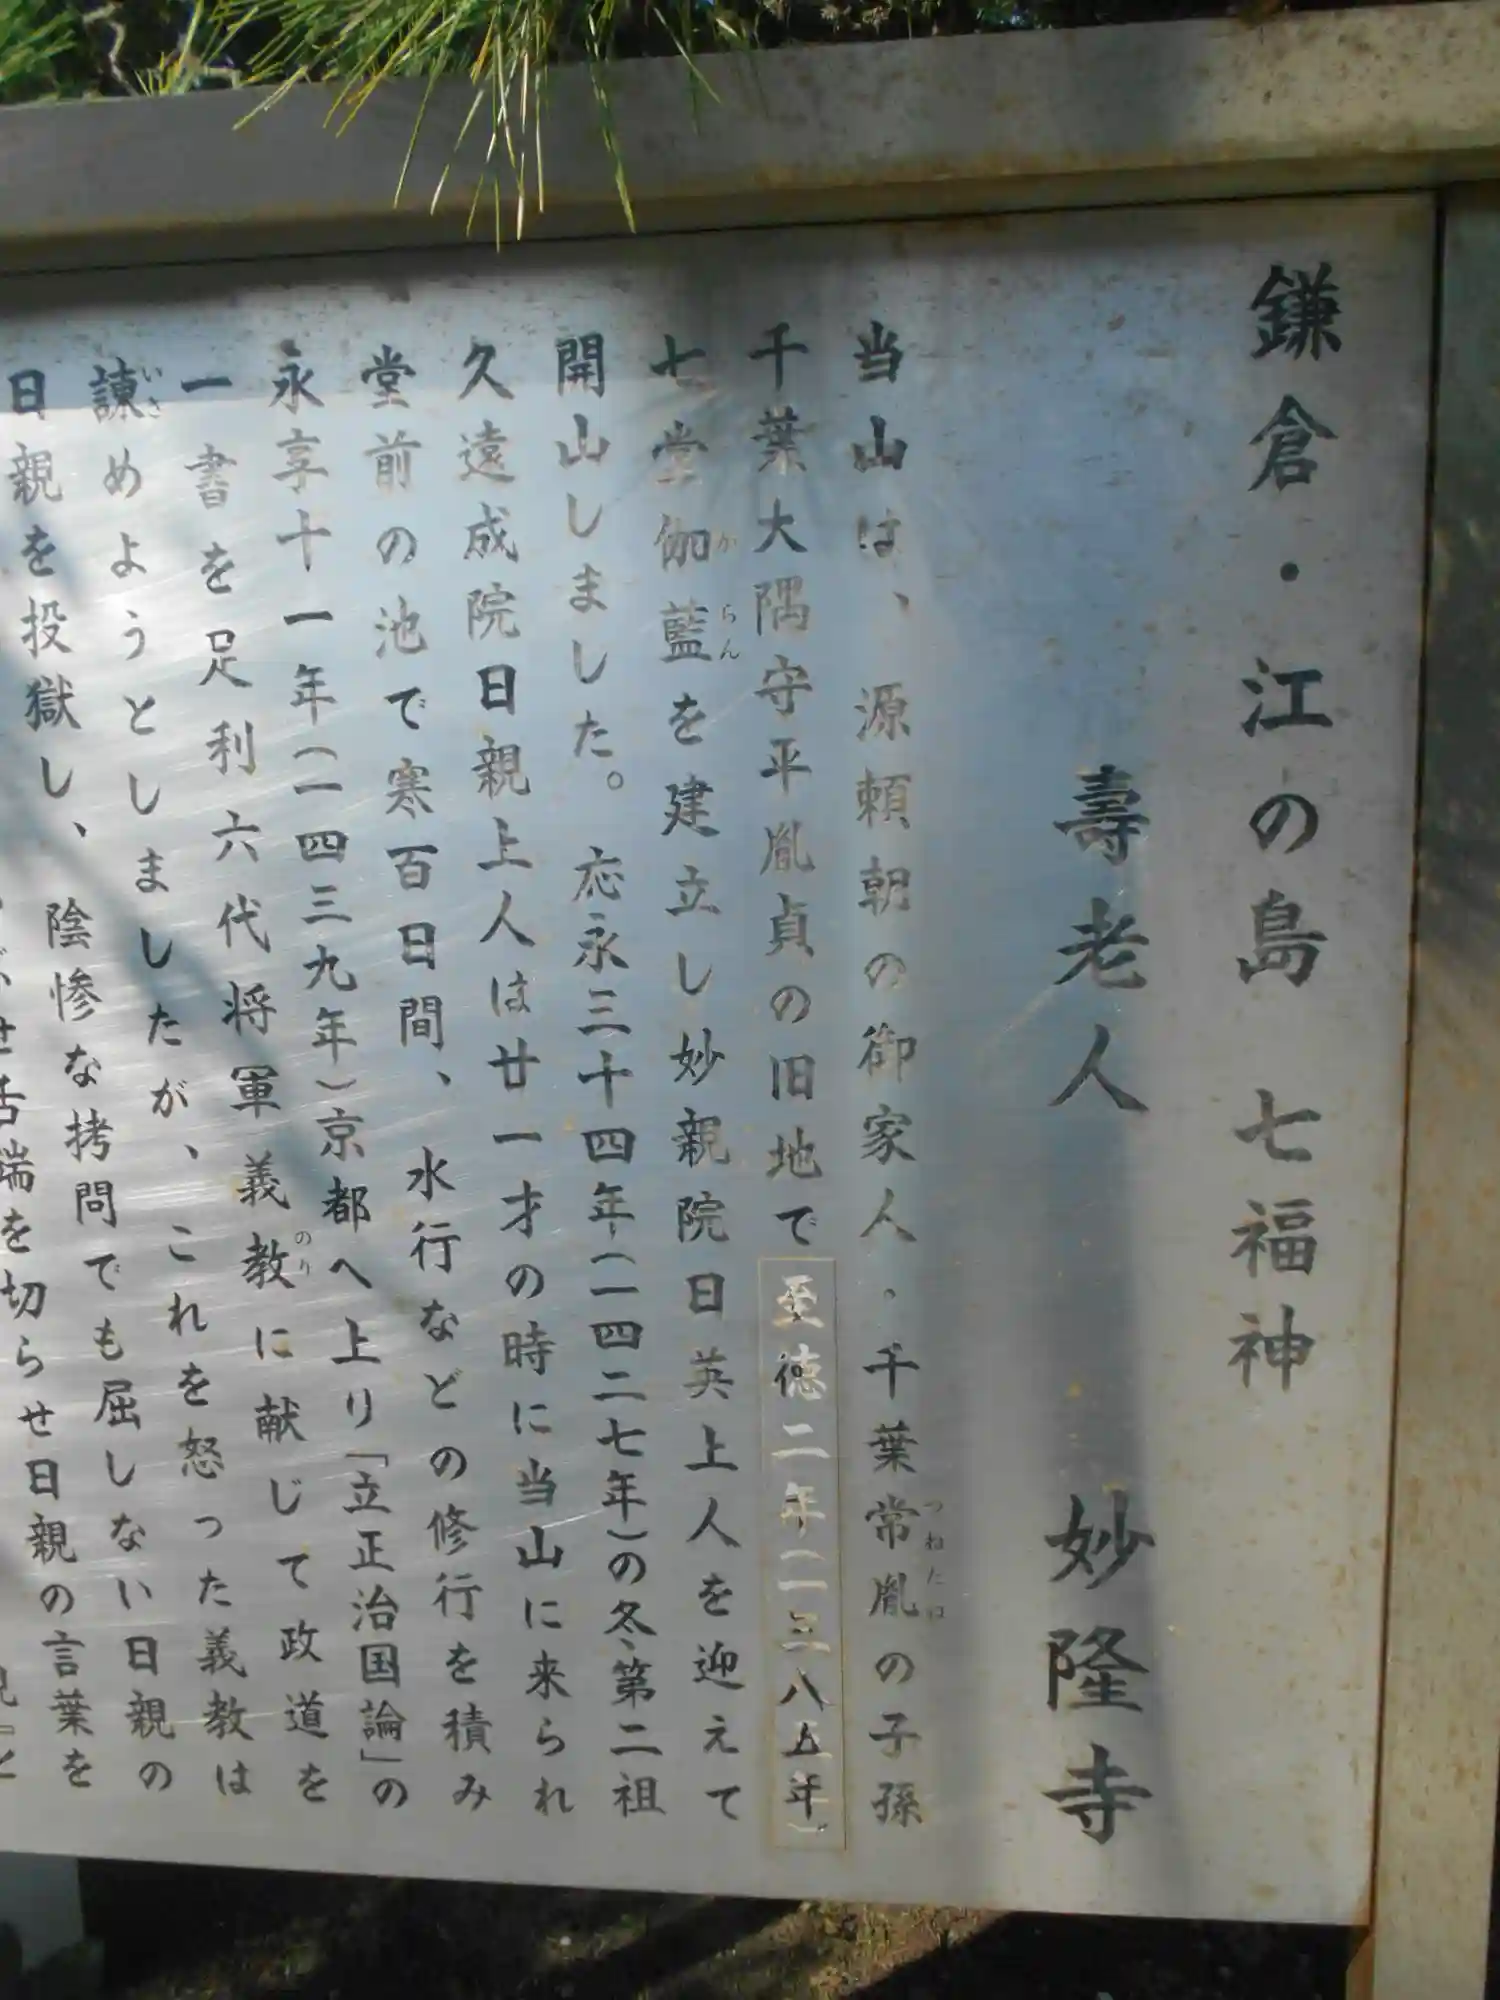 鎌倉・江の島 七福神
壽老人 妙隆寺
当山は、源頼朝の御家人・千葉常胤の子孫
つねたね
千葉大隅守平胤貞の旧地で至徳二年(一三八五年)
七堂伽藍を建立し妙親院日英上人を迎えて
がらん
開山しました。応永三十四年(一四二七年)の冬、第二祖
久遠成院日親上人は廿一才の時に当山に来られ
堂前の池で寒百日間、水行などの修行を積み
永享十一年(一四三九年)京都へ上り「立正治国論」の
一書を足利六代将軍義教に献じて政道を
のり
諌めようとしましたが、これを怒った義教は
いさ
日親を投獄し、陰惨な拷問でも屈しない日親の
せ舌端を切らせ日親の言葉を